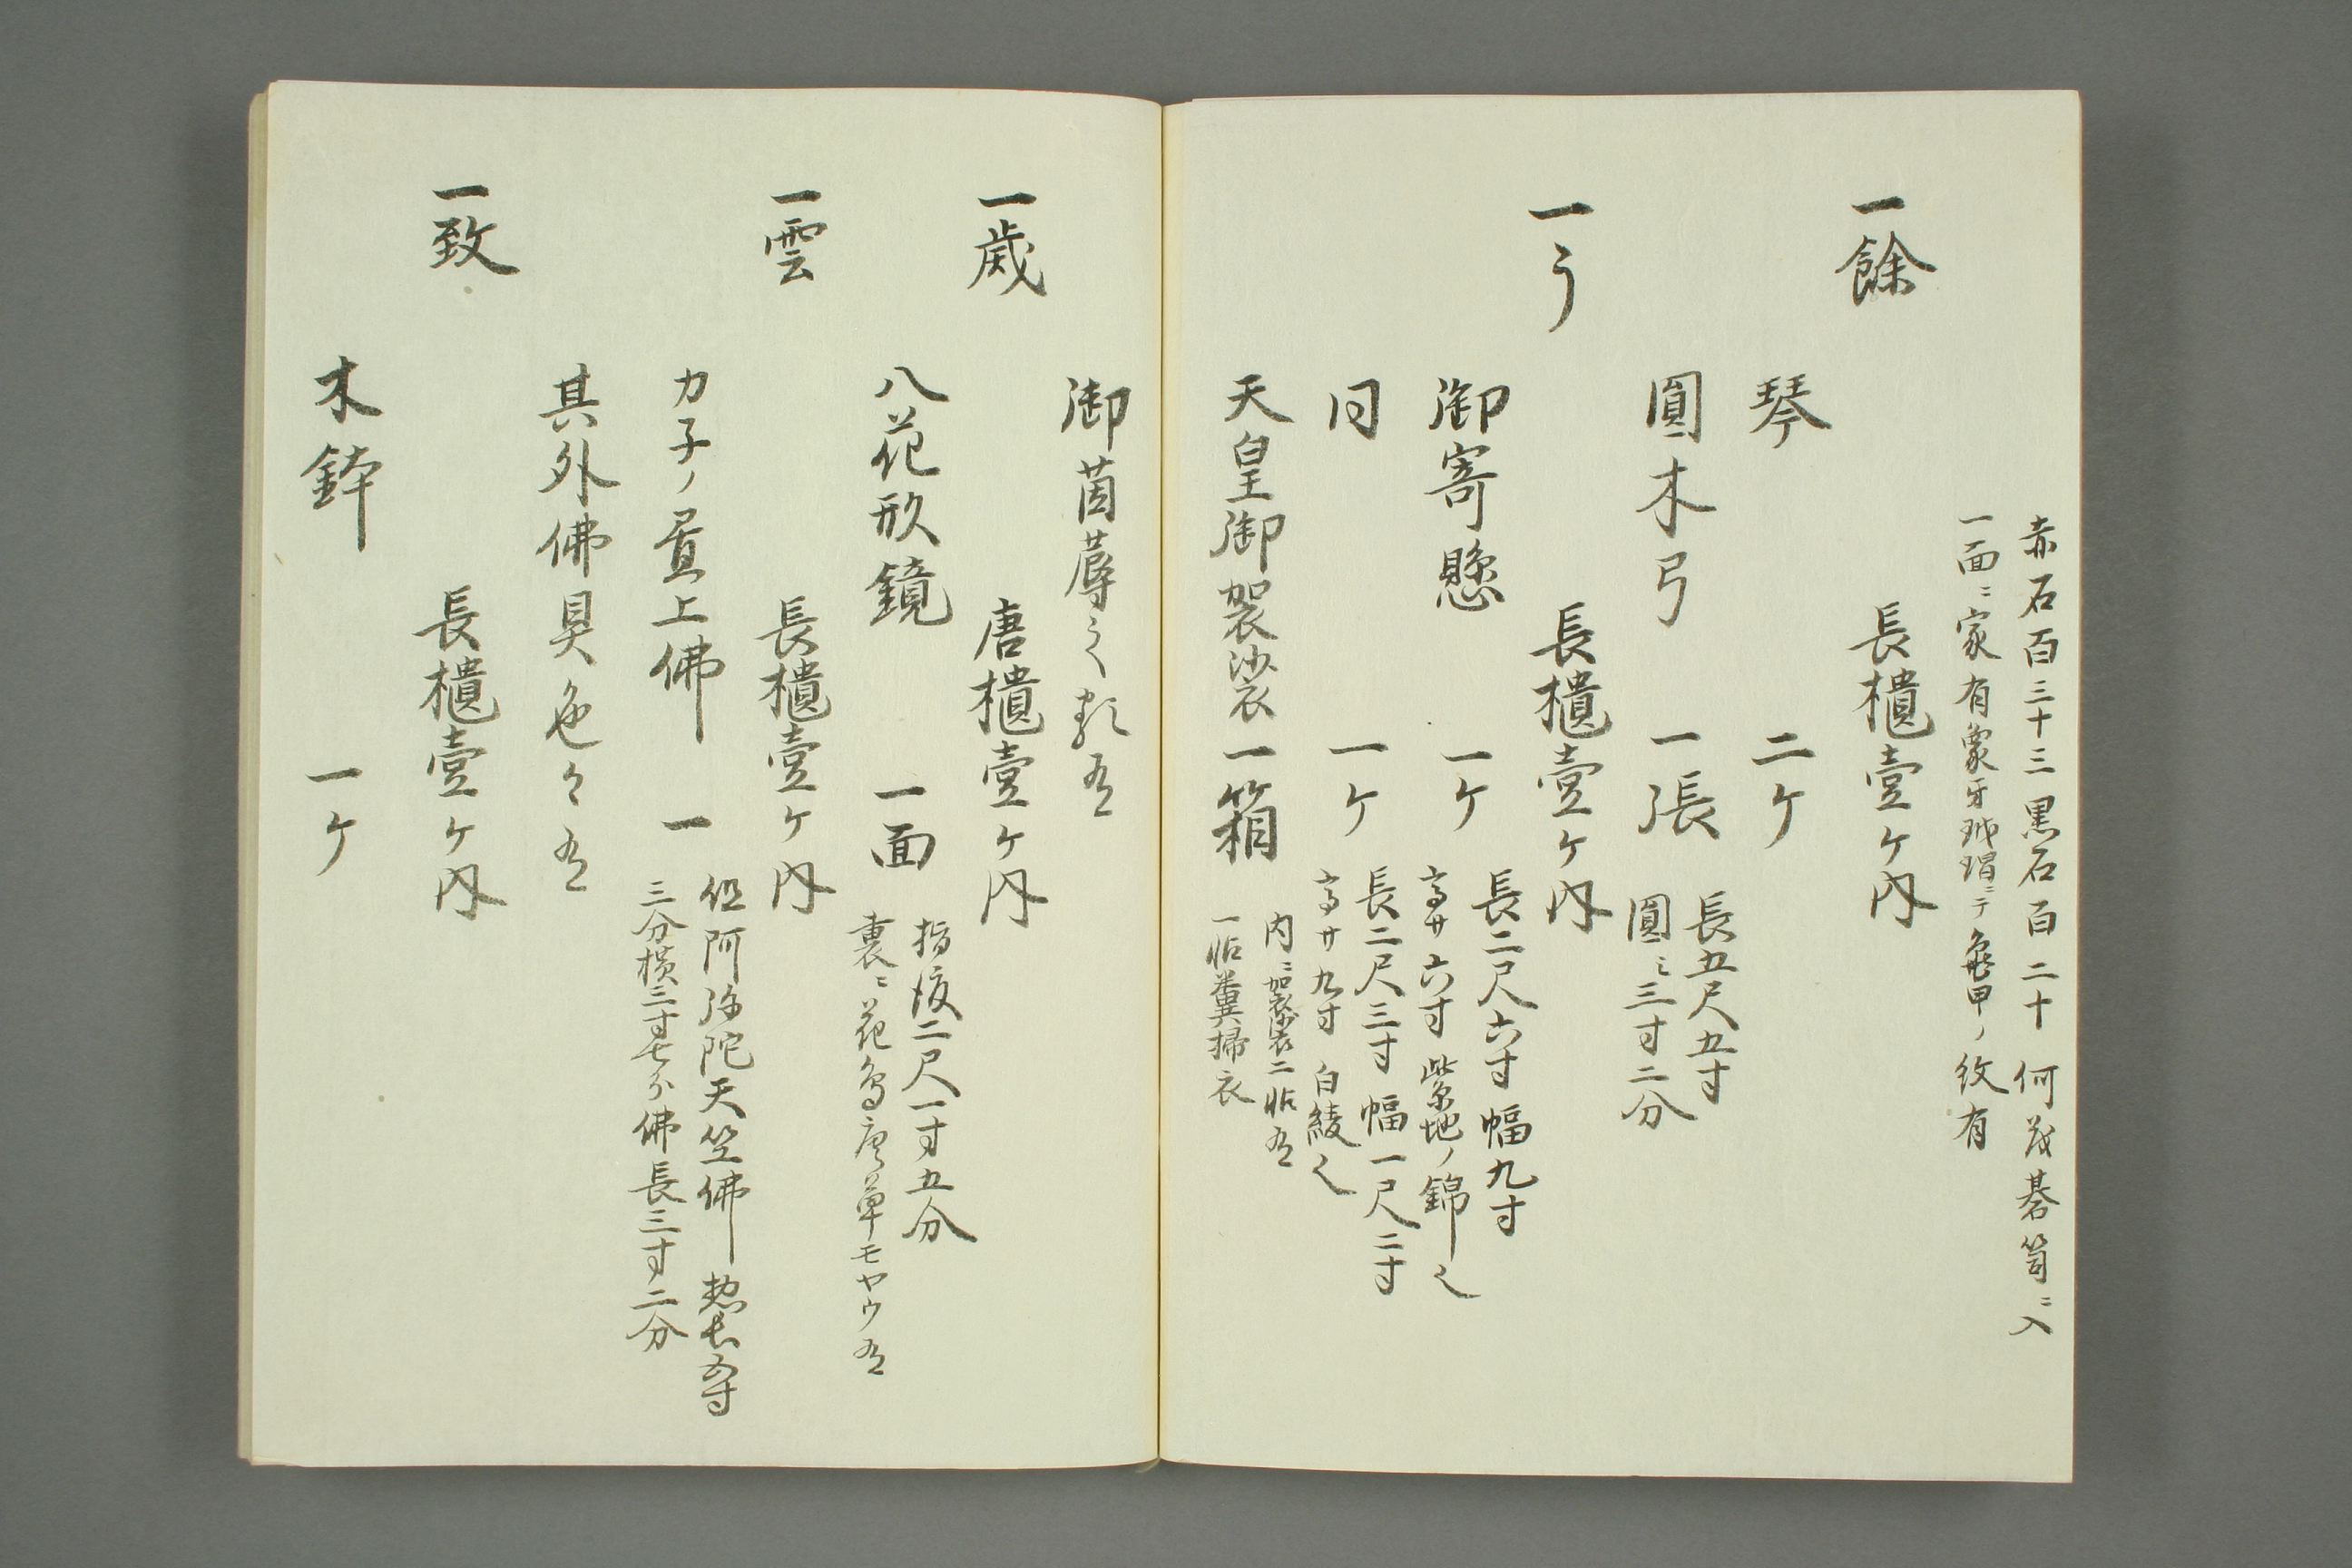 赤石百三十三黒石百二十何茂碁笥ニ入
一面ニ家有象牙玳瑁ニテ亀甲ノ紋有
一餘 長櫃壹ケ内
琴 二ケ
圓木弓 一張 長五尺五寸
圓ミ三寸二分
一う 長櫃壹ケ内
御寄懸 一ケ 長二尺六寸幅九寸
高サ六寸紫地ノ錦也
同 一ケ 長二尺三寸幅一尺二寸
高サ九寸白綾也
天皇御袈沙裟一箱 内ニ袈裟二帖有
一帖糞掃衣
御茵蓐之類有
一歳 唐櫃壹ケ内
八花形鏡 一面 指渡二尺一寸五分
裏ニ花鳥唐草モヤウ有
一雲 長櫃壹ケ内
カ子ノ置上佛 一 但阿弥陀天竺佛惣長五寸
三分横三寸七分佛長三寸二分
其外佛具色々有
一致 長櫃壹ケ内
木鉢 一ケ